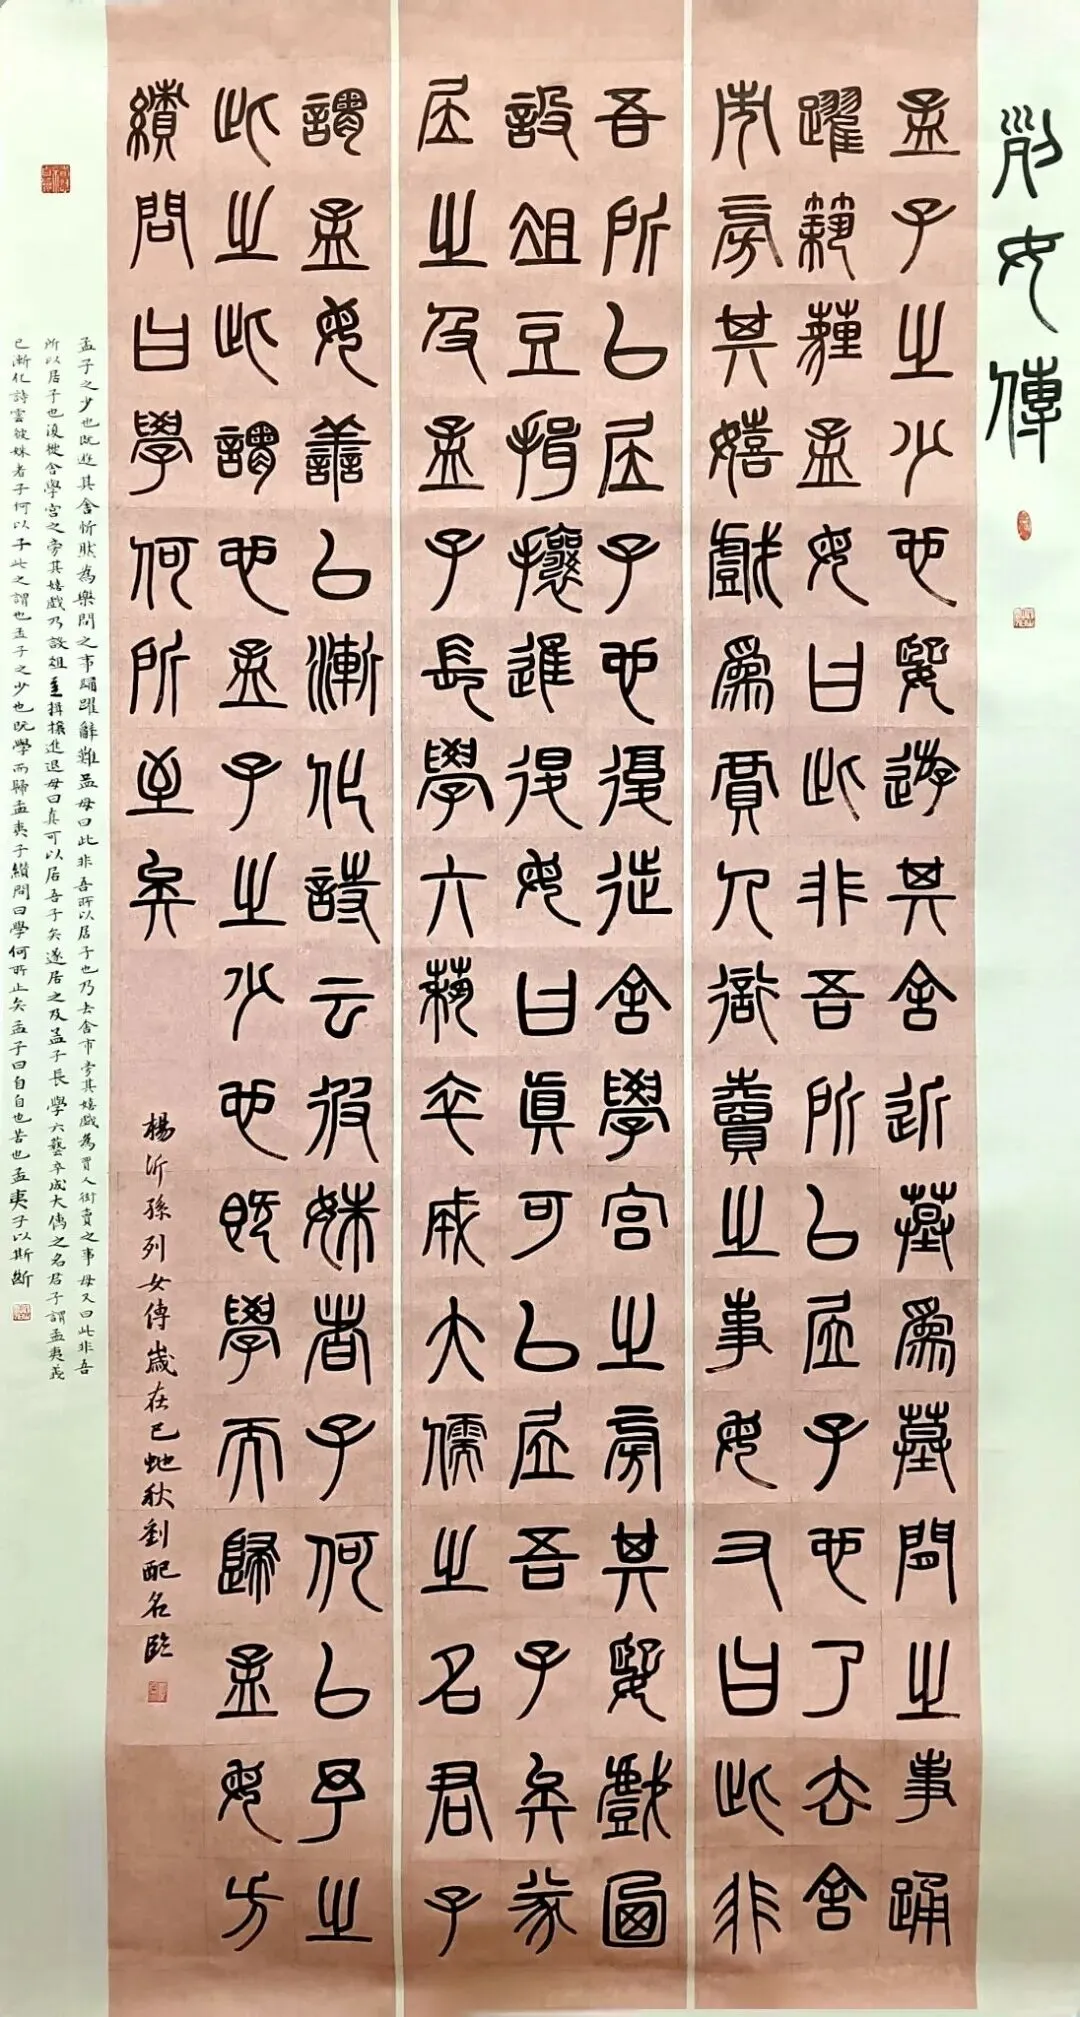 列女傳
孟子之少也嬉遊其舍近墓為墓間之事踊
躍築薶孟母曰此非吾所以居子也乃去舍
市旁其嬉戲為賈人衒賣之事母又曰此非
吾所以居子也復徙舍學宮之旁其嬉戲乃
設俎豆揖攘進退母曰真可以居吾子矣遂
居之及孟子長學六藝卒成大儒之名君子
謂孟母善以漸化詩云彼姝者子何以予之
此之此謂也孟子之少也既學而歸孟母方
績問曰學何所至矣
楊沂孫列女傳歲在己蛇秋劉配名臨
孟子之少也既遊其舍忻狀為樂間之事踊躍辭難孟母曰此非吾所以居子也乃去舍市旁其嬉戲為賈人街賣之事母又曰此非吾
所以居子也復徙舍學宮之旁其嬉戲乃設俎豆揖攘進退母曰真可以居吾子矣遂居之及孟子長學六藝卒成大儒之名君子謂孟夷義
已漸化詩雲彼姝者子何以予此之謂也孟子之少也既學而歸孟夷子績問曰學何所止矣孟子曰自自也若也孟夷子以斯斷